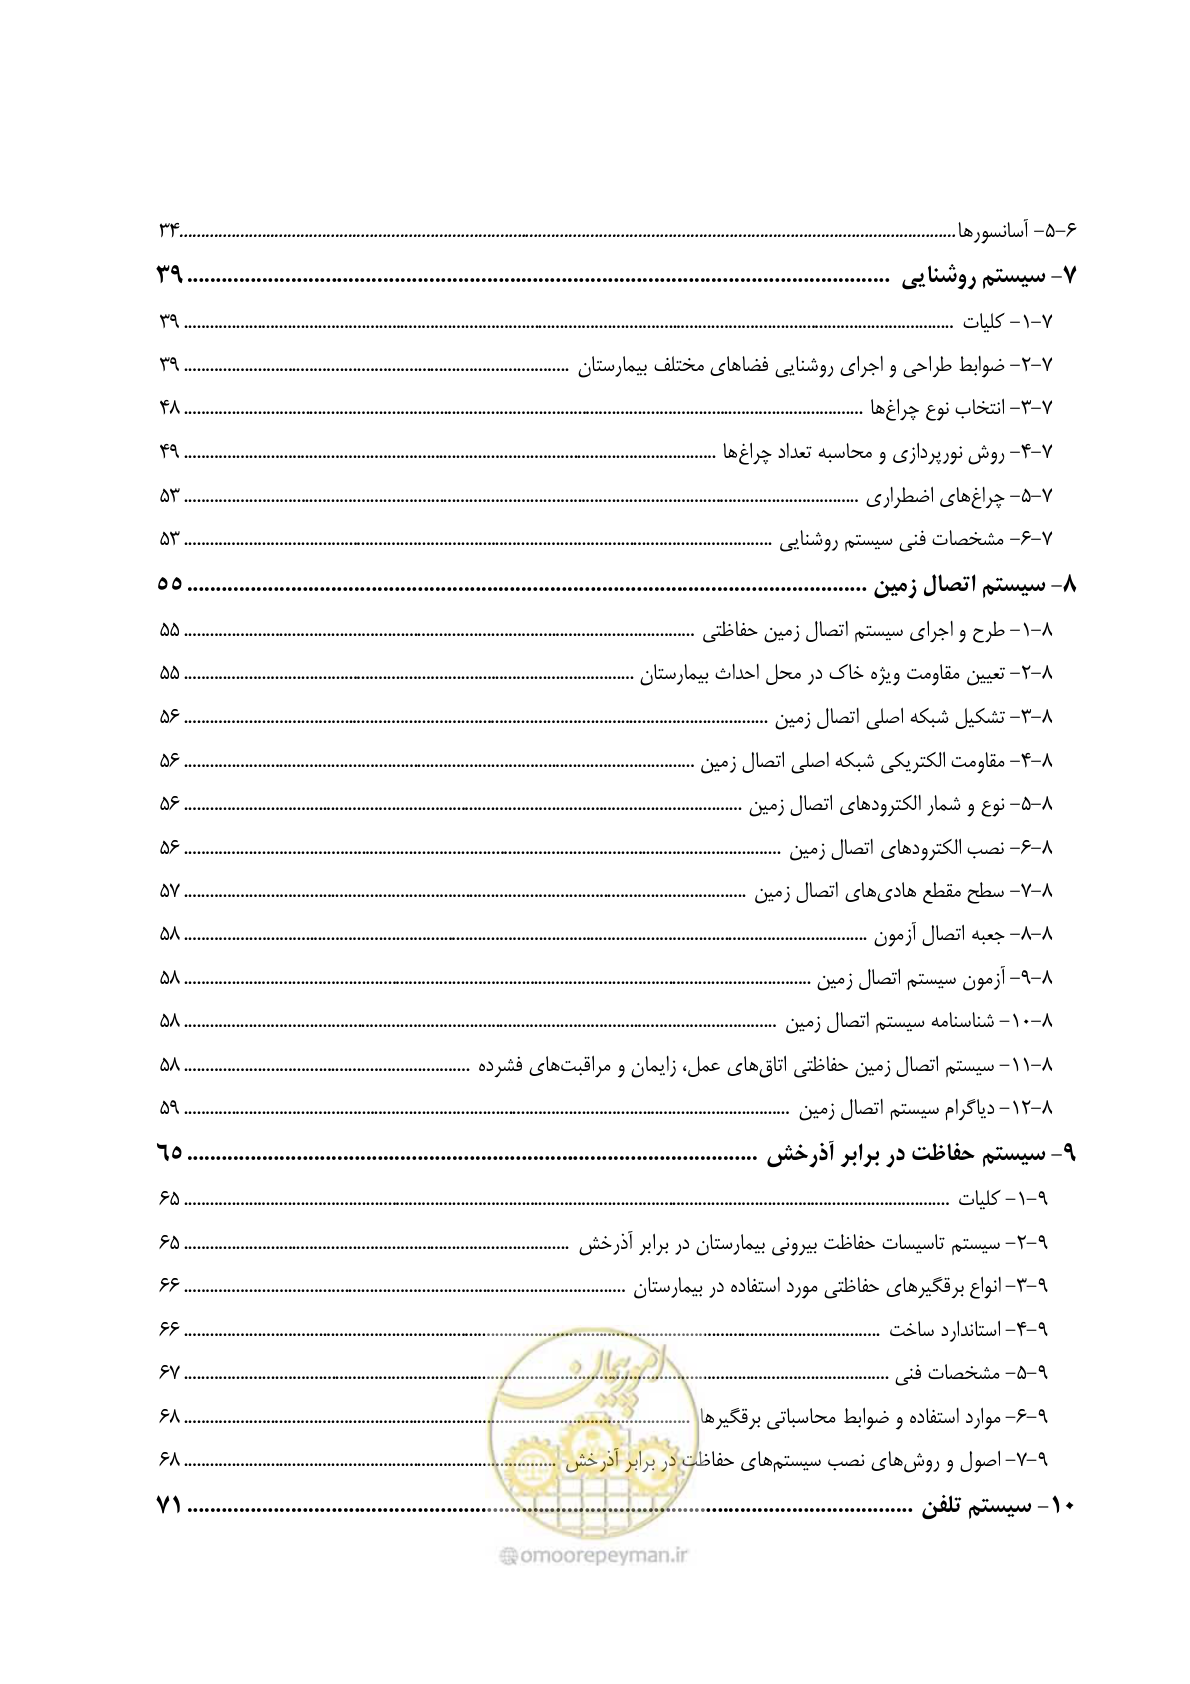 ۶-۵- آسانسورها ........ ۳۴
۷- سیستم روشنایی ........ ۳۹
۷-۱- کلیات ........ ۳۹
۷-۲- ضوابط طراحی و اجرای روشنایی فضاهای مختلف بیمارستان ........ ۳۹
۷-۳- انتخاب نوع چراغ‌ها ........ ۴۸
۷-۴- روش نورپردازی و محاسبه تعداد چراغ‌ها ........ ۴۹
۷-۵- چراغ‌های اضطراری ........ ۵۳
۷-۶- مشخصات فنی سیستم روشنایی ........ ۵۳
۸- سیستم اتصال زمین ........ ۵۵
۸-۱- طرح و اجرای سیستم اتصال زمین حفاظتی ........ ۵۵
۸-۲- تعیین مقاومت ویژه خاک در محل احداث بیمارستان ........ ۵۵
۸-۳- تشکیل شبکه اصلی اتصال زمین ........ ۵۶
۸-۴- مقاومت الکتریکی شبکه اصلی اتصال زمین ........ ۵۶
۸-۵- نوع و شمار الکترودهای اتصال زمین ........ ۵۶
۸-۶- نصب الکترودهای اتصال زمین ........ ۵۶
۸-۷- سطح مقطع هادی‌های اتصال زمین ........ ۵۷
۸-۸- جعبه اتصال آزمون ........ ۵۸
۸-۹- آزمون سیستم اتصال زمین ........ ۵۸
۸-۱۰- شناسنامه سیستم اتصال زمین ........ ۵۸
۸-۱۱- سیستم اتصال زمین حفاظتی اتاق‌های عمل، زایمان و مراقبت‌های فشرده ........ ۵۸
۸-۱۲- دیاگرام سیستم اتصال زمین ........ ۵۹
۹- سیستم حفاظت در برابر آذرخش ........ ۶۵
۹-۱- کلیات ........ ۶۵
۹-۲- سیستم تاسیسات حفاظت بیرونی بیمارستان در برابر آذرخش ........ ۶۵
۹-۳- انواع برقگیرهای حفاظتی مورد استفاده در بیمارستان ........ ۶۶
۹-۴- استاندارد ساخت ........ ۶۶
۹-۵- مشخصات فنی ........ ۶۷
امور پیمان
۹-۶- موارد استفاده و ضوابط محاسباتی برقگیرها ........ ۶۸
۹-۷- اصول و روش‌های نصب سیستم‌های حفاظت در برابر آذرخش ........ ۶۸
۱۰- سیستم تلفن ........ ۷۱
@omoorepeyman.ir